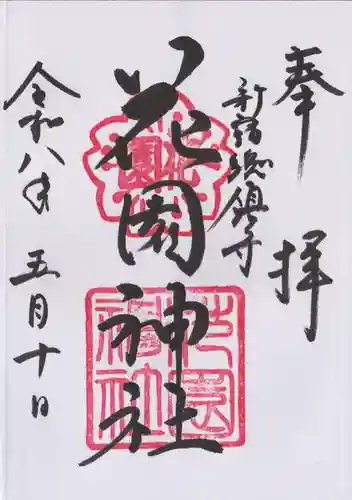 奉拝
新宿総鎮守
花園神社
令和八年
五月十日
花園
花園神社